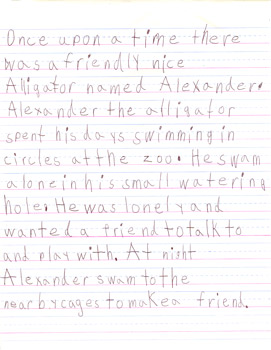 Once upon a time there
was a friendly nice
Alligator named Alexander.
Alexander the alligator
spent his days swimming in
circles at the zoo. He swam
alone in his small watering
hole. He was lonely and
wanted a friend to talk to
and play with. At night
Alexander swam to the
nearby cages to make a friend.